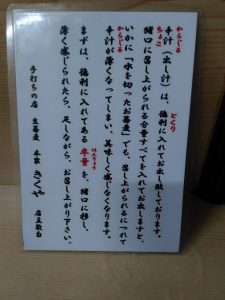 とくり
辛汁(出し汁)は、徳利に入れてお出し致しております。
からじる
ちょこ
猪口に召し上がられる分量すべてを入れてお出ししますと、
いかに「水を切ったお蕎麦」でも、召し上がられるにつれて
からじる
辛汁が薄くなってしまい、美味しく感じなくなります。
はんりょう
まずは、徳利に入れてある半量を、猪口に移し、
薄く感じられたら、足しながら、お召し上がり下さい。
手打ちの店 生蕎麦 本家 きくや 店主敬白